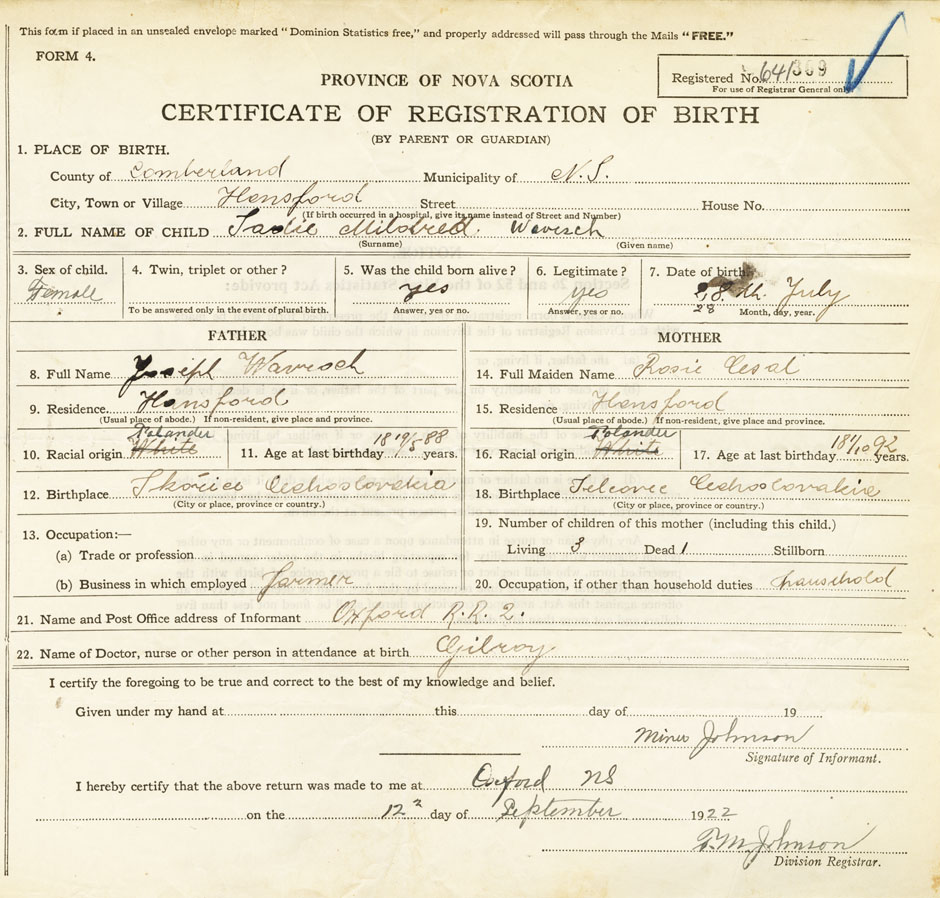 This form if placed in an unsealed envelope marked "Dominion Statistics free," and properly addressed will pass through the Mails "FREE."
FORM 4.
PROVINCE OF NOVA SCOTIA
Registered No. 641309
For use of Registrar General only
CERTIFICATE OF REGISTRATION OF BIRTH
(BY PARENT OR GUARDIAN)
1. PLACE OF BIRTH.
County of Comberland Municipality of N.S.
City, Town or Village Hansford Street House No.
(If birth occurred in a hospital, give its name instead of Street and Number)
2. FULL NAME OF CHILD Sadie Mildred. Wavisch
(Surname) (Given name)
3. Sex of child. 4. Twin, triplet or other? 5. Was the child born alive? 6. Legitimate? 7. Date of birth.
Female yes yes 28 th. July
28
To be answered only in the event of plural birth. Answer, yes or no. Answer, yes or no. Month, day, year.
FATHER MOTHER
8. Full Name Joseph Wavisch 14. Full Maiden Name Rosie Cesal
9. Residence. Hansford 15. Residence Hansford
(Usual place of abode.) If non-resident, give place and province. (Usual place of abode.) If non-resident, give place and province.
Polander Polander
10. Racial origin White 11. Age at last birthday 18 19/8 88 years. 16. Racial origin White 17. Age at last birthday 18 1/10 92 years.
12. Birthplace Skořice Cechoslovakia 18. Birthplace Cechoslovakia
(City or place, province or country.) (City or place, province or country.)
13. Occupation:— 19. Number of children of this mother (including this child.)
(a) Trade or profession Living 3 Dead 1 Stillborn
(b) Business in which employed Farmer 20. Occupation, if other than household duties household
21. Name and Post Office address of Informant Oxford R.R.2.
22. Name of Doctor, nurse or other person in attendance at birth Gilroy
I certify the foregoing to be true and correct to the best of my knowledge and belief.
Given under my hand at this day of 19
Miner Johnson
Signature of Informant.
I hereby certify that the above return was made to me at Oxford NS
on the 12 day of September 1922
T.M. Johnson
Division Registrar.